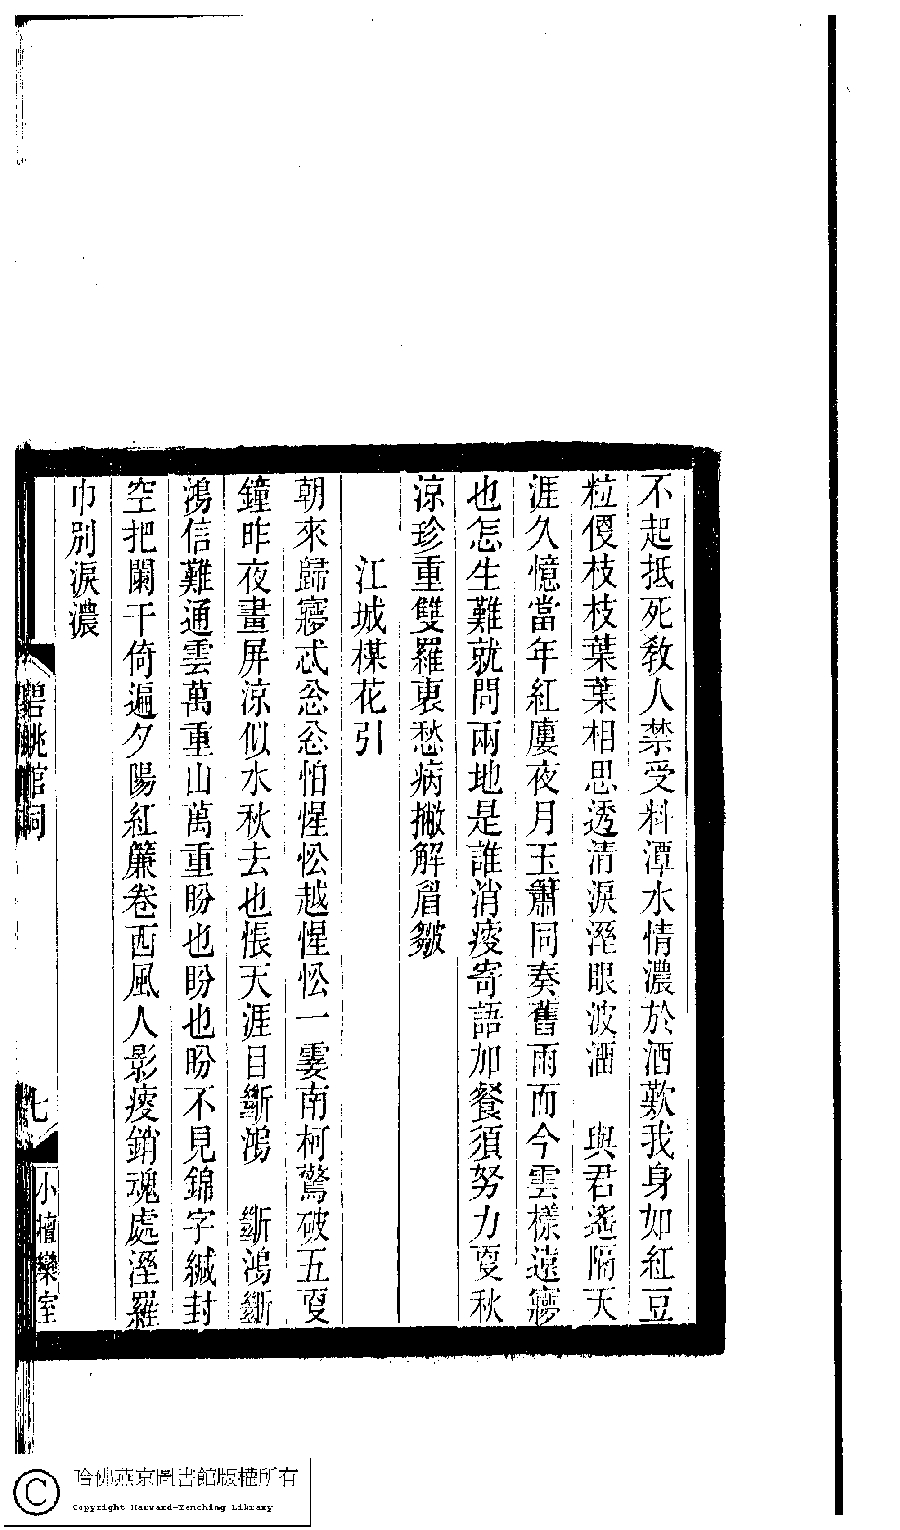 不起抵死敎人禁受料潭水情濃於酒歎我身如紅豆
粒㑳枝枝葉葉相思透清淚溼眼波湎　與君遙隔天
涯久憶當年紅廔夜月玉簫同奏舊雨而今雲樣遠寱
也怎生難就問兩地是誰消瘦寄語加餐須努力夏秋
涼珍重雙羅衷愁病撇解眉皺
江城楳花引
朝來歸寱忒忩忩怕惺忪越惺忪一霎南柯驚破五夏
鐘昨夜畫屏涼似水秋去也悵天涯目斷鴻　斷鴻斷
鴻信難通雲萬重山萬重盼也盼也盼不見錦字緘封
空把闌干倚遍夕陽紅簾卷西風人影瘦銷魂處溼羅
巾別淚濃
碧桃館詞
七
小檀欒室
哈佛燕京圖書館版權所有
Copyright Harvard-Yenching Library